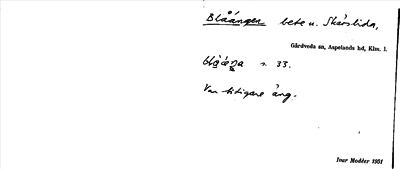 Blåängen bete u. Skårslida,
Gårdveda sn, Aspelands hd, Klm. l.
s. 33.
Var tidigare äng.
Ivar Modéer 1951